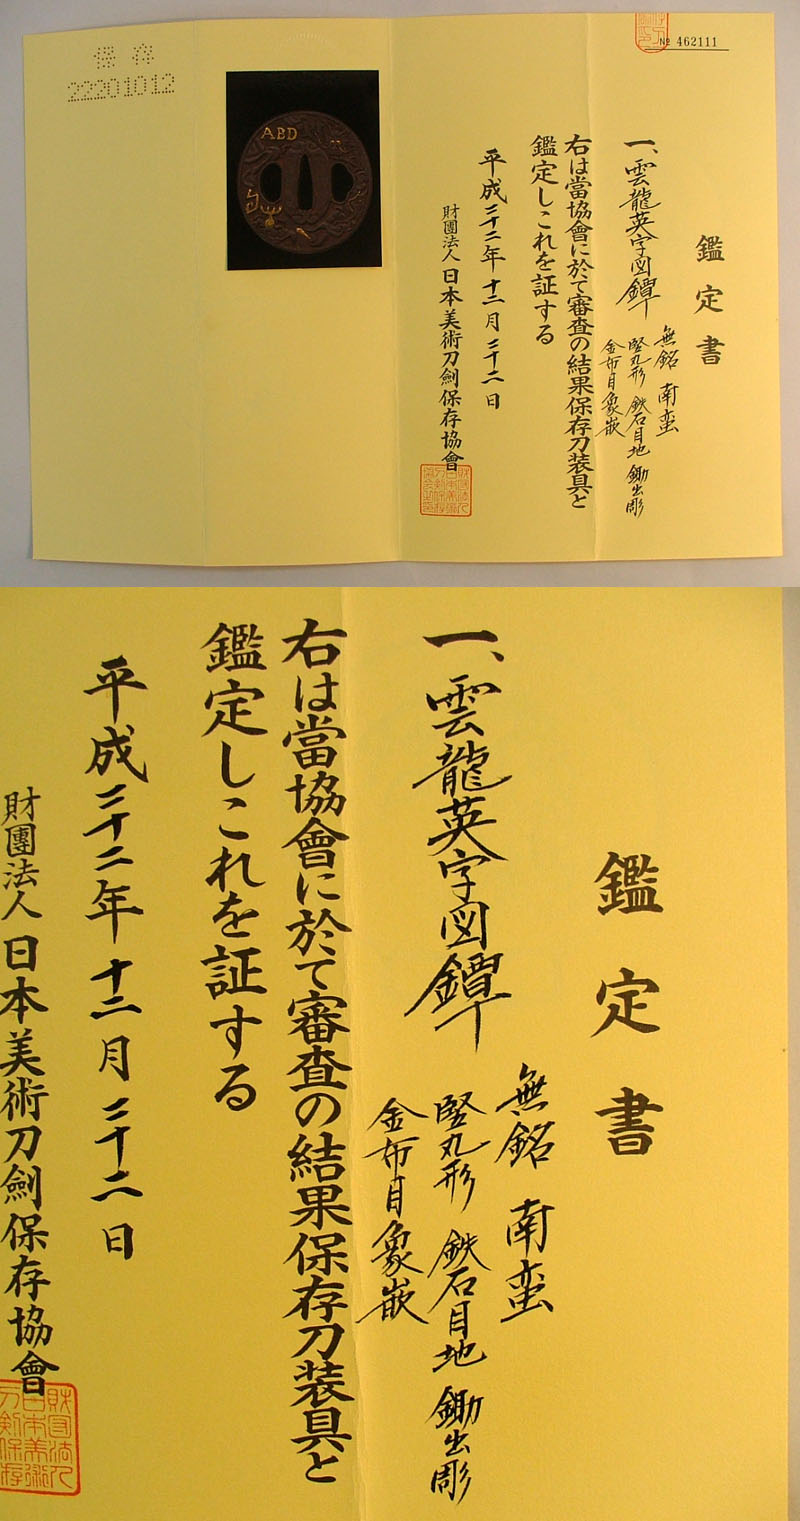 № 462111
鑑定書
一、雲龍英字図鐔
無銘 南蛮
竪丸形 鉄石目地 鋤出彫
金布目象嵌
右は當協會に於て審査の結果保存刀装具と
鑑定しこれを証する
平成二十二年 十二月 二十二日
財團法人 日本美術刀劍保存協會
ABD
保存
22201012
鑑定書
一、雲龍英字図鐔
無銘 南蛮
竪丸形 鉄石目地 鋤出彫
金布目象嵌
右は當協會に於て審査の結果保存刀装具と
鑑定しこれを証する
平成二十二年 十二月 二十二日
財團法人 日本美術刀劍保存協會